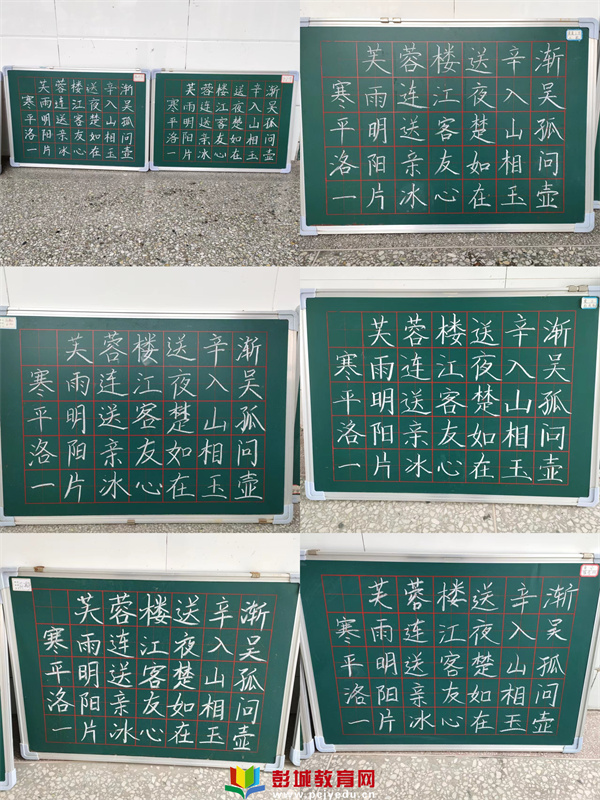 芙蓉楼送辛渐
寒雨连江夜入吴
平明送客楚山孤
洛阳亲友如相问
一片冰心在玉壶
芙蓉楼送辛渐
寒雨连江夜入吴
平明送客楚山孤
洛阳亲友如相问
一片冰心在玉壶
芙蓉楼送辛渐
寒雨连江夜入吴
平明送客楚山孤
洛阳亲友如相问
一片冰心在玉壶
芙蓉楼送辛渐
寒雨连江夜入吴
平明送客楚山孤
洛阳亲友如相问
一片冰心在玉壶
芙蓉楼送辛渐
寒雨连江夜入吴
平明送客楚山孤
洛阳亲友如相问
一片冰心在玉壶
芙蓉楼送辛渐
寒雨连江夜入吴
平明送客楚山孤
洛阳亲友如相问
一片冰心在玉壶
芙蓉楼送辛渐
寒雨连江夜入吴
平明送客楚山孤
洛阳亲友如相问
一片冰心在玉壶
彭城教育网
www.pcjyedu.cn